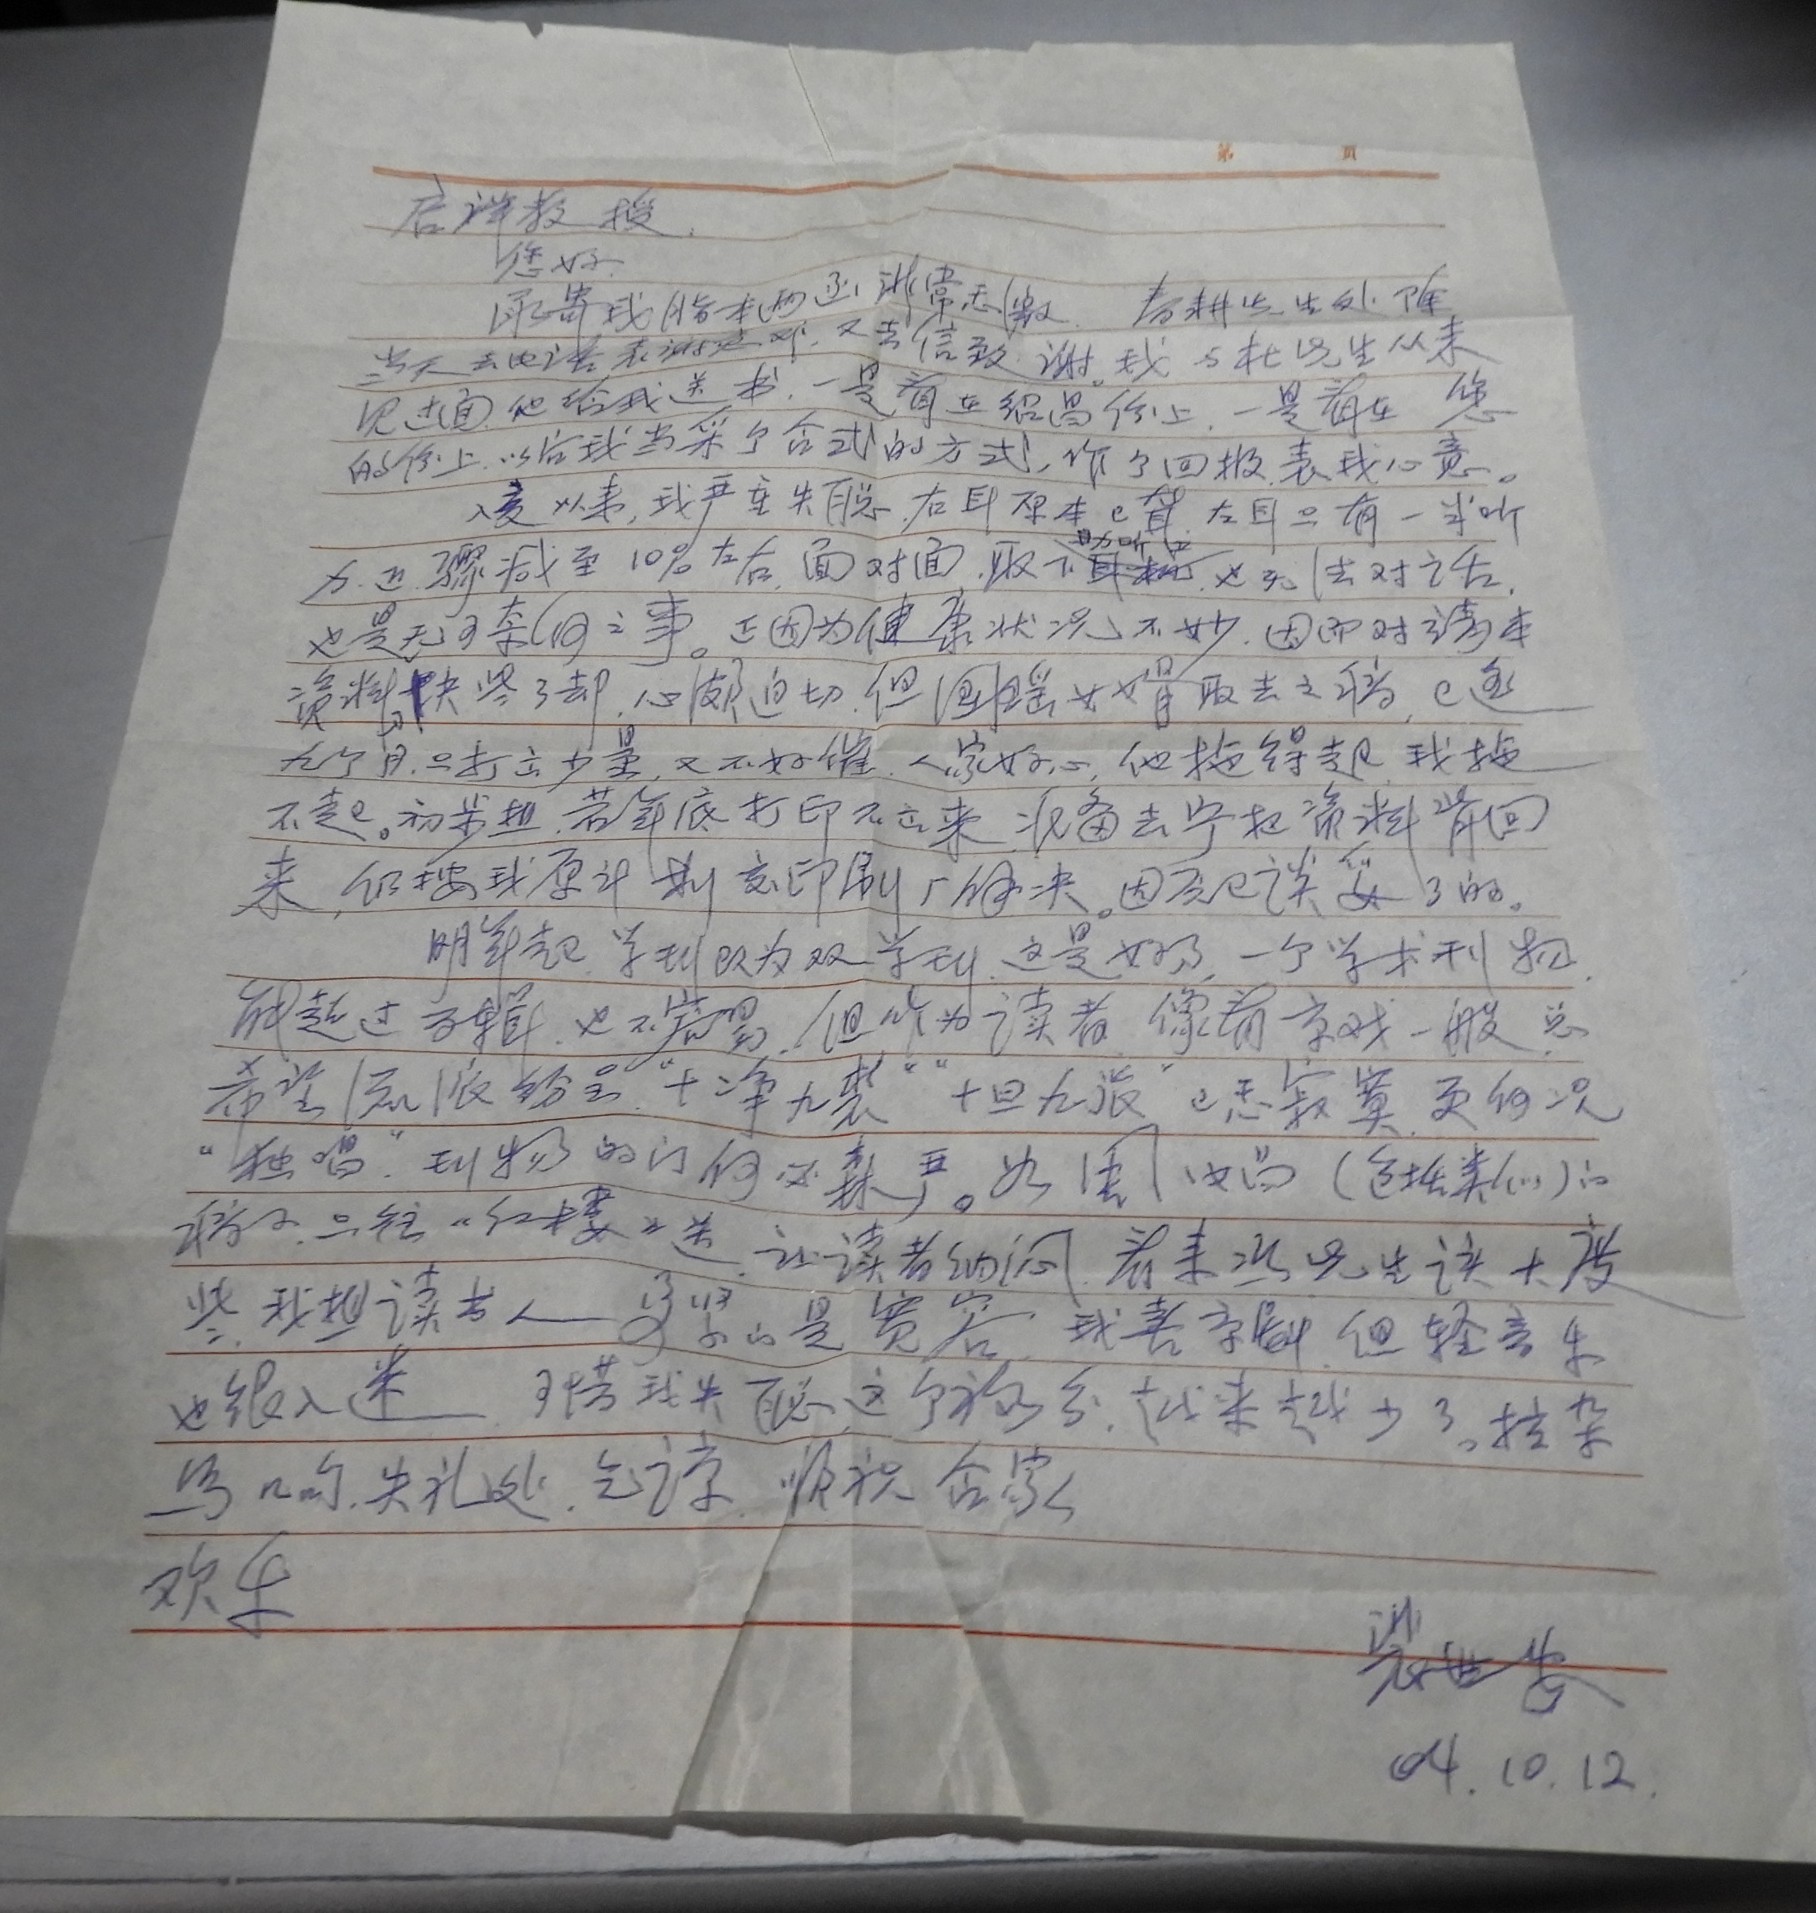 第 页
启祥教授:
您好
承寄我脂本两函,非常感激。春耕先生处,除
当天去电话表谢意外,又去信致谢。我与杜先生从未
见过面,他给我送书,一是看在绍昌份上,一是看在您
的份上,以后我当采个合式的方式,作个回报,表我心意。
入夏以来,我严重失聪,右耳原本已聋,左耳只有一半听
力,还骤减至10%左右,面对面,取下助听器,也无法对话,
也是无可奈何之事。正因为健康状况不妙,因而对这本
资料快些了却,心颇迫切,但女婿取去之稿,已近
九个月,只打出少量,又不好催,人家好心,他拖得起,我拖
不起。初步想,若年底打印不出来,准备去宁把资料背回
来,仍按我原计划交印刷厂解决。因为已谈妥了的。
明年起,学刊改为双学刊,这是好事,一个学术刊物,
能超过百辑,也不容易,但作为读者,像看京戏一般,总
希望流派纷呈,“十净九裘”“十旦九张”已感寂寞,更何况
“独唱”,刊物的门何必森严。如周汝昌(包括类似)的
稿子,只往“红楼”送,让读者纳闷,看来冯先生该大度
些,我想读书人可贵的是宽容,我喜京剧,但轻音乐
也很入迷,可惜我失聪,这个福分,越来越少了。拉杂
写上,失礼处,乞谅,顺祝合家
欢乐
裴世安
04.10.12.